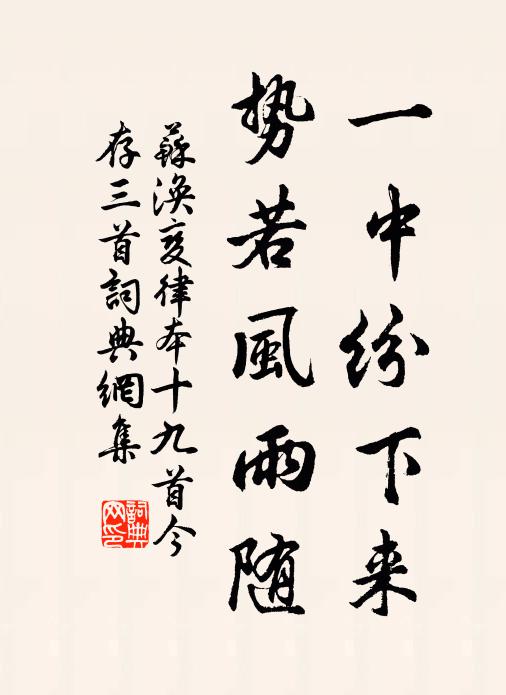 一中紛下来
勢若風雨随
蘇渙変律本十九首今
存三首詞典網集
詞典
网印